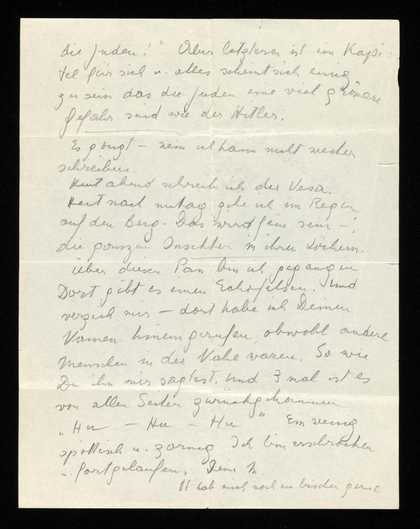 die Juden!" Aber letzteres ist ein Kapi-
tel für sich u. alles scheint sich einig
zu sein das die Juden eine viel grössere
Gefahr sind wie der Hitler.
Es genügt – nein ich kann nicht weiter
schreiben.
Heut abend schreib ich der Vesa.
Heut nach mittag gehe ich im Regen
auf den Berg. Das wird fein sein –
die ganzen Insekten in ihren Löchern.
über diesen Pan bin ich gegangen
Dort gibt es einen Echofelsen. Und
verzeih mir – dort habe ich Deinen
Namen hineingerufen, obwohl andere
Menschen in die Nähe waren. So wie
Du ihn mir sagtest. Und 3 mal ist es
von allen Seiten zurückgekommen
"Hu – Hu – Hu" Ein wenig
spöttisch u. zornig. Ich bin erschrocken
fortgelaufen. Dein
Ich hab mich noch